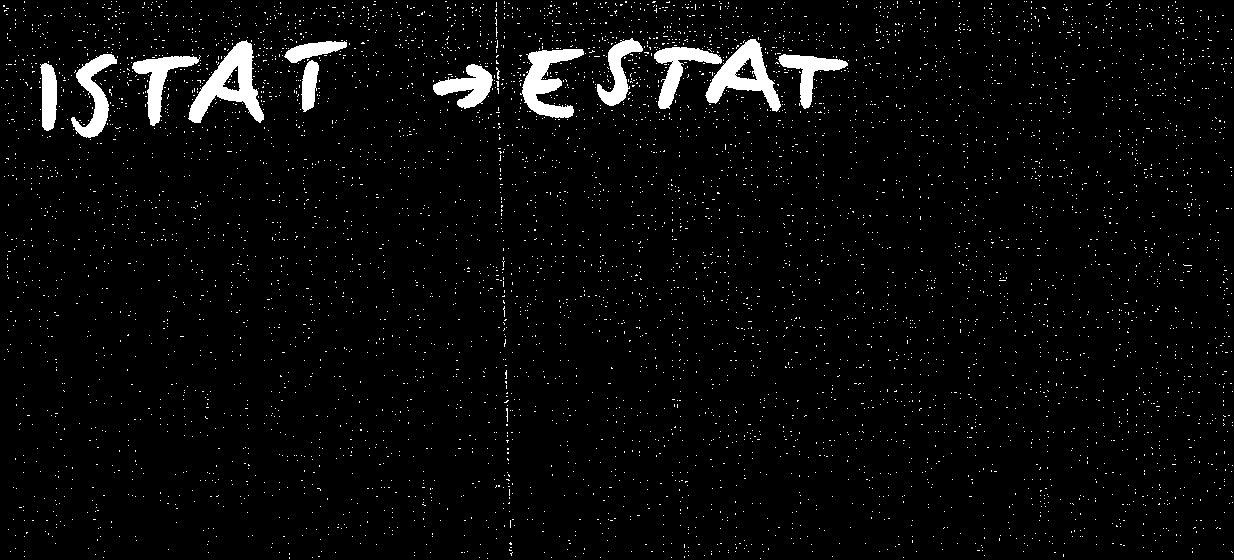 ISTAT → ESTAT